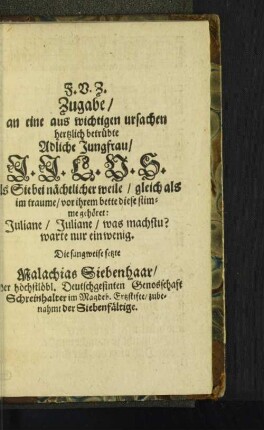 F. V. Z.
Zugabe/
an eine aus wichtigen ursachen
hertzlich betrübte
Adliche Jungfrau/
J. J. L. V. S.
ls Sie bei nächtlicher weile / gleich als
im traume/ vor ihrem bette diese stim-
me gehöret:
Juliane / Juliane / was machstu?
warte nur ein wenig.
Die sangweise setzte
Malachias Siebenhaar/
er höchstlöbl. Deutschgesinten Genosschaft
Schreinhalter im Magdeb. Ertzstifte/ zube-
nahmt der Siebenfältige.